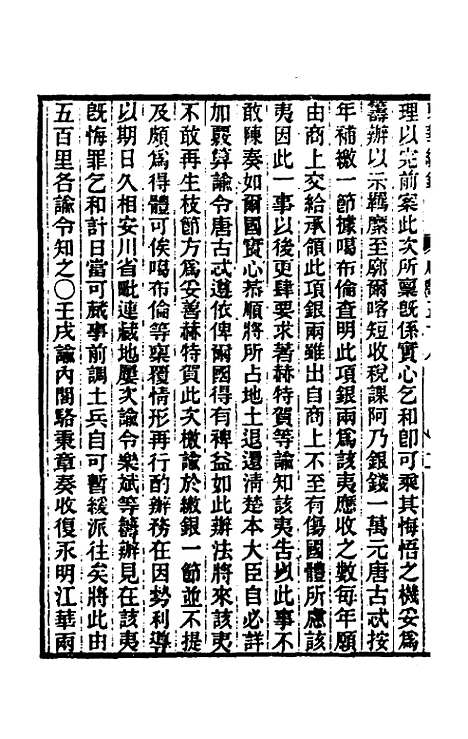 理以完前案此次所稟既係實心乞和卽可乘其悔悟之機妥爲
籌辦以示羈縻至廓爾喀短收稅課阿乃銀錢一萬元唐古忒按
年補繳一節據噶布倫查明此項銀兩爲該夷應收之數每年願
由商上交給承領此項銀兩雖出自商上不至有傷國體所慮該
夷因此一事以後更肆要求著赫特賀等諭知該夷告以此事不
敢陳奏如爾國實心恭順將所占地土退還淸楚本大臣自必詳
加覈算諭令唐古忒遵依俾爾國得有裨益如此辦法將來該夷
不敢再生枝節方爲妥善赫特賀此次檄諭於繳銀一節並不提
及頗爲得體可俟噶布倫等稟覆情形再行酌辦務在因勢利導
以期日久相安川省毗連藏地屢次諭令樂斌等籌辦見在該夷
旣悔罪乞和計日當可蕆事前調土兵自可暫緩派往矣將此由
五百里各諭令知之〇壬戌諭內閣駱秉章奏收復永明江華兩